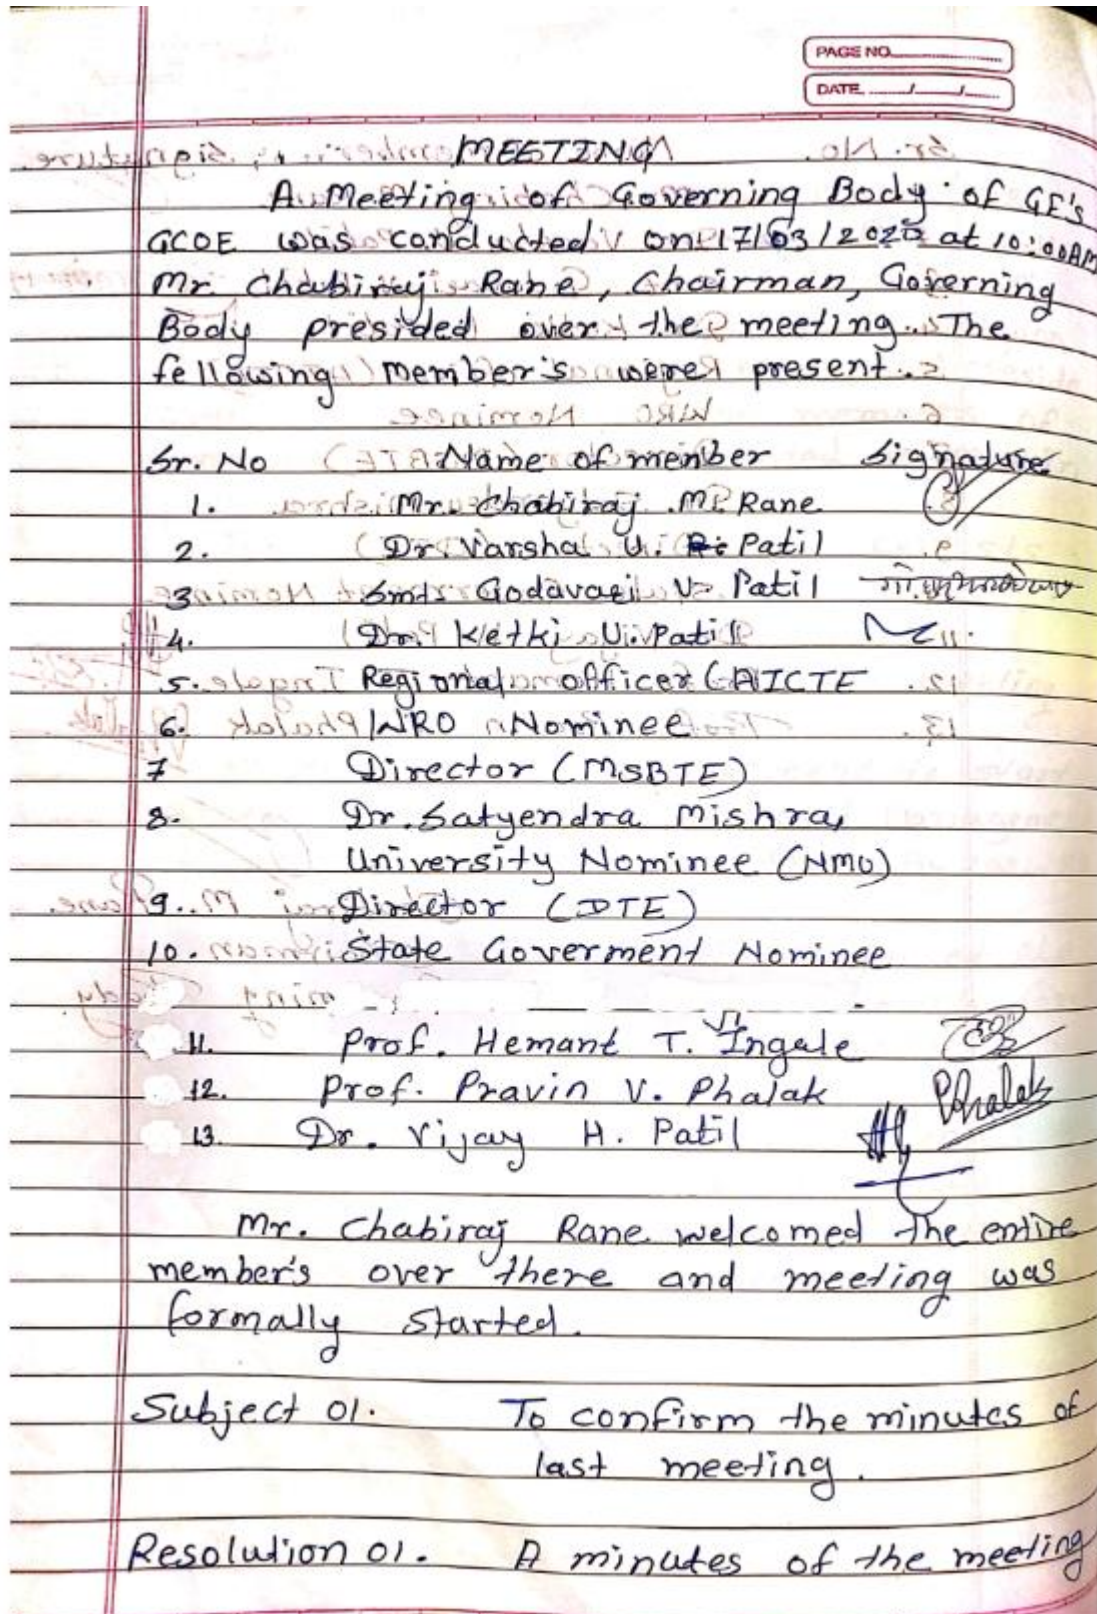 PAGE NO.
DATE / /
MEETING
A Meeting of Governing Body of GF's
GCOE was conducted on 17/03/2020 at 10:00AM
Mr. Chabiraj Rane, Chairman, Governing
Body presided over the meeting. The
following member's were present.
Sr. No Name of member Signature
1. Mr. Chabiraj M. Rane
2. Dr Varsha U. Patil
3 Smt. Godavari V. Patil
4. Dr. Ketki U. Patil
5. Regional officer (AICTE
6. WRO Nominee
7 Director (MSBTE)
8. Dr. Satyendra Mishra,
University Nominee (NMU)
9. Director (DTE)
10. State Goverment Nominee
11. Prof. Hemant T. Ingale
12. Prof. Pravin V. Phalak Phalak
13 Dr. Vijay H. Patil
Mr. Chabiraj Rane welcomed the entire
member's over there and meeting was
formally started.
Subject 01. To confirm the minutes of
last meeting.
Resolution 01. A minutes of the meeting